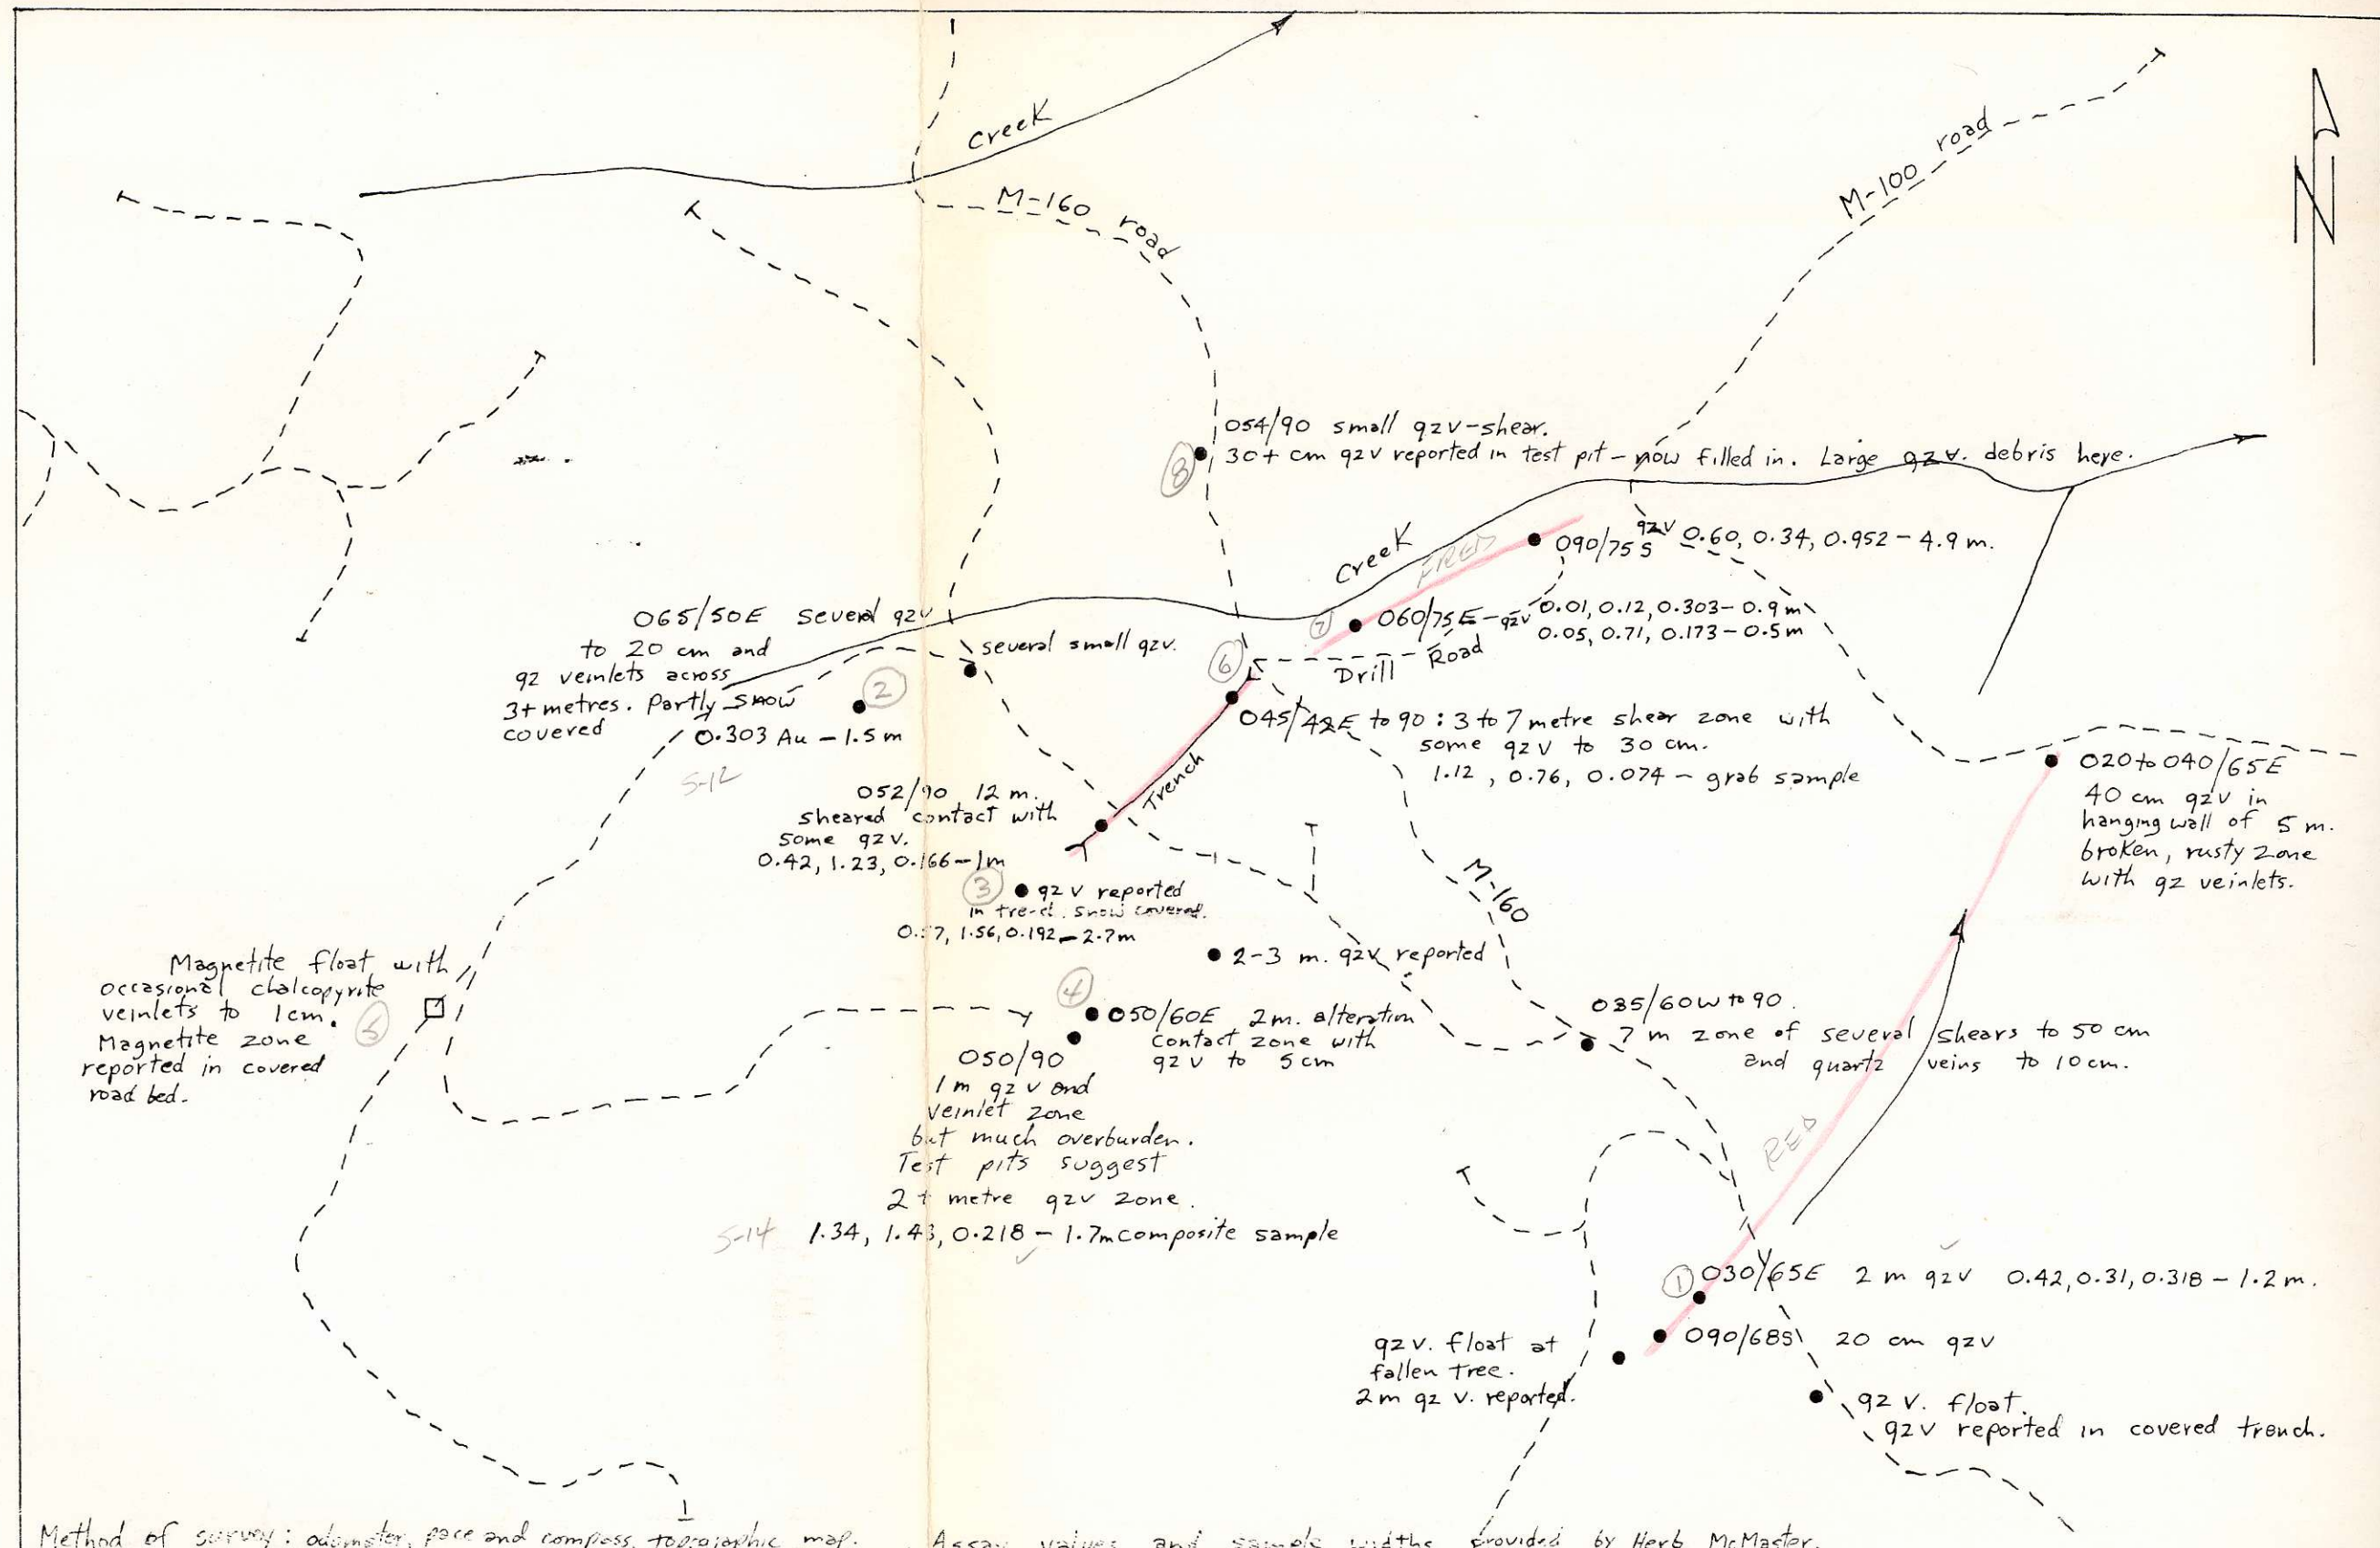 Creek
M-160 road
M-100 road
N
054/90 small qzv-shear.
8
30+ cm qzv reported in test pit - now filled in. Large qzv. debris here.
Creek
FRED
090/75S qzv 0.60, 0.34, 0.952 - 4.9 m.
7
060/75E - qzv 0.01, 0.12, 0.303 - 0.9 m
0.05, 0.71, 0.173 - 0.5 m
Drill Road
6
065/50E several qzv
to 20 cm and
qz veinlets across
3+ metres. Partly snow
covered
several small qzv.
2
0.303 Au - 1.5 m
S-12
045/42E to 90 : 3 to 7 metre shear zone with
some qzv to 30 cm.
1.12, 0.76, 0.074 - grab sample
Trench
052/90 12 m.
sheared contact with
some qzv.
0.42, 1.23, 0.166 - 1m
3
qzv reported
in trend. snow covered.
1.56, 0.192 - 2.7m
M-160
020 to 040/65E
40 cm qzv in
hanging wall of 5 m.
broken, rusty zone
with qz veinlets.
2-3 m. qzv reported
Magnetite float with
occasional chalcopyrite
veinlets to 1cm.
Magnetite zone
reported in covered
road bed.
5
4
050/60E 2m. alteration
contact zone with
qzv to 5cm
050/90
1m qzv and
veinlet zone
but much overburden.
Test pits suggest
2+ metre qzv zone.
S-14 1.34, 1.43, 0.218 - 1.7m composite sample
035/60W to 90.
7 m zone of several shears to 50 cm
and quartz veins to 10cm.
RED
1
030/65E 2 m qzv 0.42, 0.31, 0.318 - 1.2 m.
090/68S 20 cm qzv
qzv. float at
fallen tree.
2m qz v. reported.
qz v. float.
qzv reported in covered trench.
Method of survey: odometer, pace and compass, topographic map. Assay values and sample widths provided by Herb McMaster.